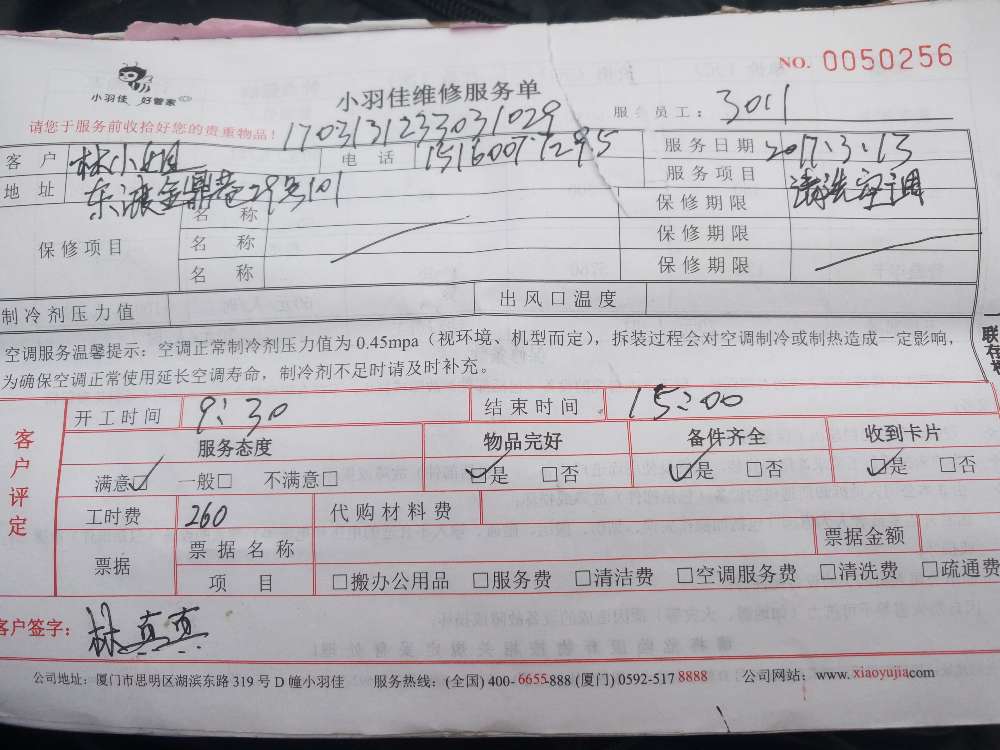 NO. 0050256
小羽佳 好管家
小羽佳维修服务单
服务员工: 3011
请您于服务前收拾好您的贵重物品!
1703131233031029
客户 林小姐 电话 15160077295 服务日期 2017.3.13
地址 东渡金鼎巷29号101 服务项目 清洗空调
保修项目
名称 保修期限
名称 保修期限
名称 保修期限
制冷剂压力值 出风口温度
空调服务温馨提示:空调正常制冷剂压力值为0.45mpa(视环境、机型而定),拆装过程会对空调制冷或制热造成一定影响,
为确保空调正常使用延长空调寿命,制冷剂不足时请及时补充。
客户评定
开工时间 9:30 结束时间 15:00
服务态度 物品完好 备件齐全 收到卡片
满意☑ 一般□ 不满意□ ☑是 □否 ☑是 □否 ☑是 □否
工时费 260 代购材料费
票据 票据名称 票据金额
项目 □搬办公用品 □服务费 □清洁费 □空调服务费 □清洗费 □疏通费
客户签字: 林真真
公司地址:厦门市思明区湖滨东路319号D幢小羽佳 服务热线:(全国)400-6655-888 (厦门)0592-5178888 公司网站:www.xiaoyujia.com